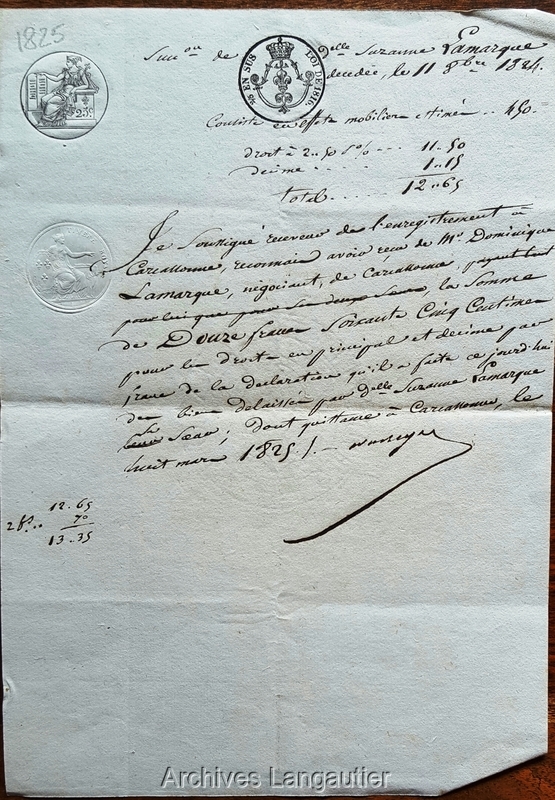 1825
Succ.on de D.elle Suzanne Lamarque
décédée, le 11 8bre 1824.
25 EN SUS LOI DE 1816.
25c.
Consiste en effets mobiliers estimés .. 450.
droit à 2..50 p% ... 11..50
décime .... 1..15
Total .... 12..65
Je Soussigné receveur de l'enregistrement à
Carcassonne, reconnais avoir reçu de Mr. Dominique
Lamarque, négociant, de Carcassonne, payant tant
pour lui que pour ses deux Sœurs, la Somme
de Douze francs Soixante Cinq Centimes
pour les droits en principal et décime par
franc de la déclaration qu'il a faite ce jourd'hui
des biens délaissés par d.elle Suzanne Lamarque
Sa
leur Sœur; dont quittance à Carcassonne, le
huit mars 1825 ./.
12.65
2 f.s.. 70
13..35
Archives Langautier